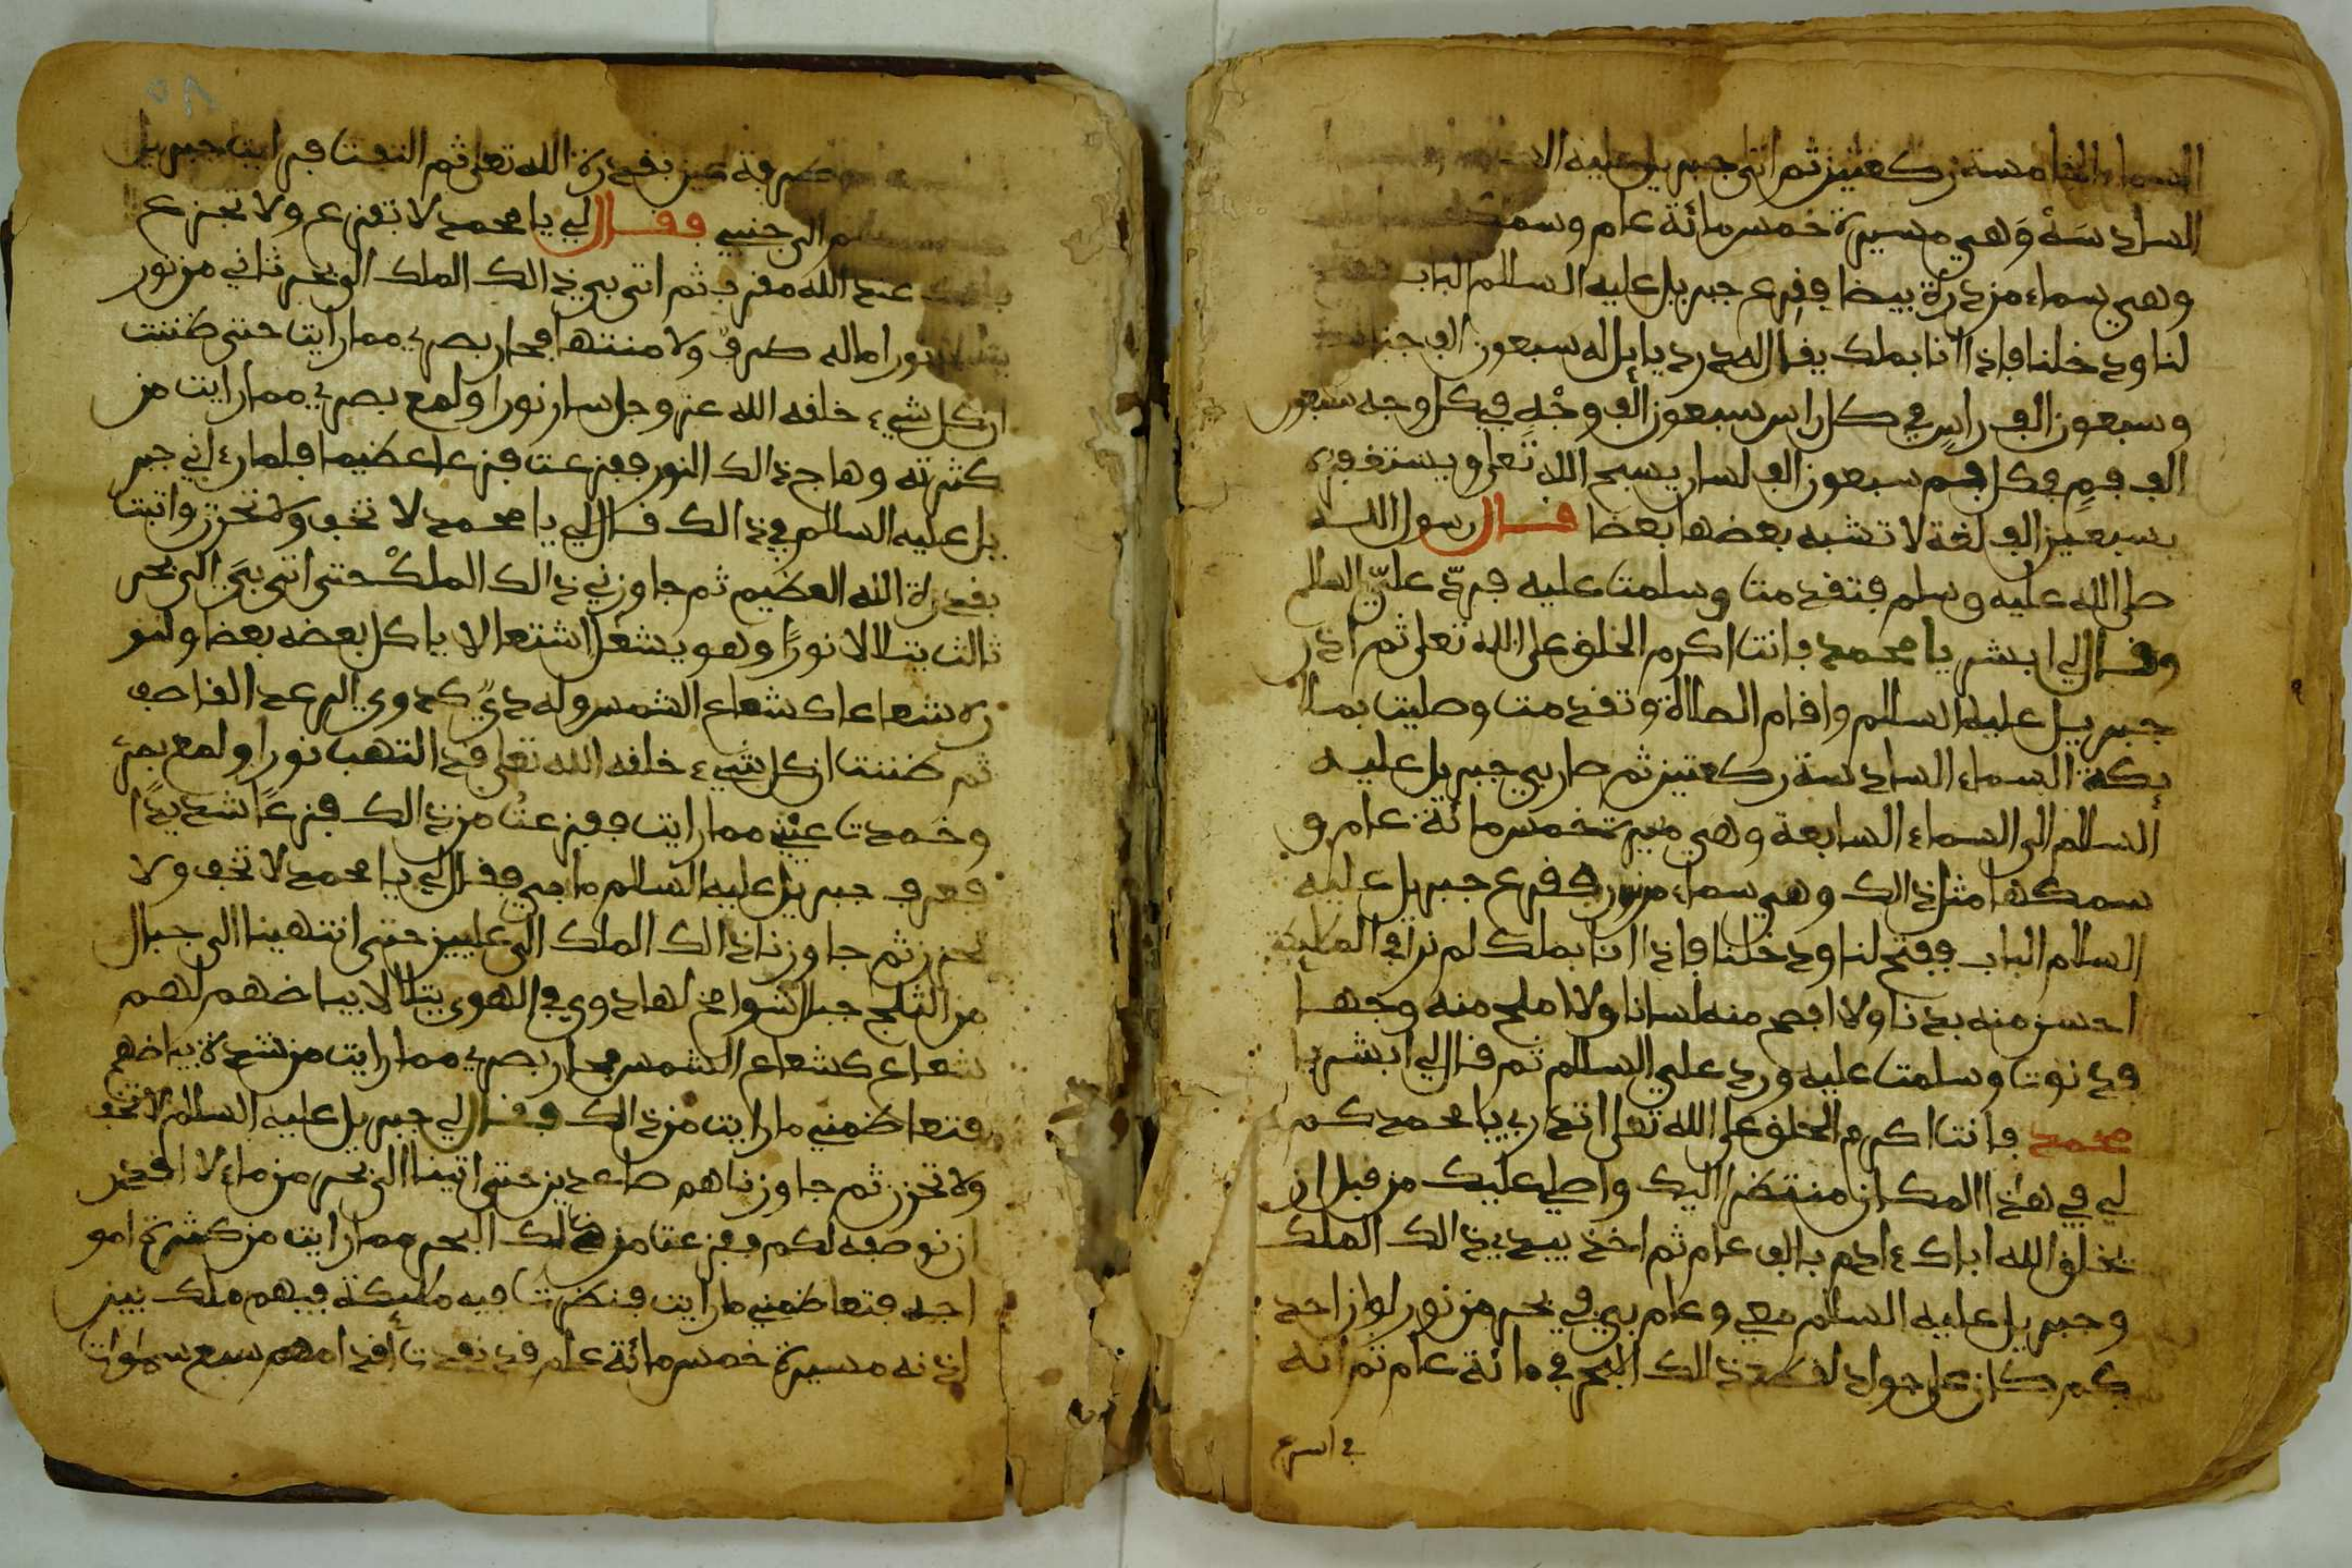 السماء الخامسة ركعتين ثم اتى جبريل عليه
السادسَةْ وَهي مسيرة خمس مائة عام وسمك
وهي سماء من درة بيضا ففرع جبريل عليه السلام الباب
لنا ودخلنا فاذا انا بملك يقال له دردياييل له سبعون الف
وسبعون الف راسٍ في كل راس سبعون الف وجْهٍ في كل وجه سبعون
الف فمٍ فكل فم سبعون الف لسان يسبح الله تَعلى ويستغفره
بسبعين الف لغة لا تشبه بعضها بعضا قال رسول الله
صلى الله عليه وسلم فتقدمت وسلمت عليه فردّ عليّ السلم
وقال لي ابشر يا محمد فانت اكرم الخلق على الله تعلى ثم اذن
جبريل عليه السلام واقام الصلاة وتقدمت وصليت بملا
يكة السماء السادسة ركعتين ثم صار بي جبريل عليه
السلام الى السماء السابعة وهي مسيرة خمس مائة عام و
سمكها مثل ذالك وهي سماء من نور ففرع جبريل عليه
السلام الباب ففتح لنا ودخلنا فاذا انا بملك لم نرا في الملايكة
احسن منه بدنا ولا افصح منه لسانا ولا املح منه وجها
فدنوت وسلمت عليه ورد علي السلام ثم قال لي ابشر يا
محمد فانت اكرم الخلق على الله تعلى اتدري يا محمد كم
لي في هذا المكان منتضرا اليك واصلي عليك من قبل ان
يخلق الله اباك ءادم بالف عام ثم اخذ بيدي ذالك الملك
وجبريل عليه السلام معي وعام بي في بحر من نور لو ان احد
كم كان على جواد لقطع ذالك البحر في مائة عام ثم انه
في اسرع
طرفة عين بقدرة الله تعلى ثم التفت فرايت جبريل
الى جنبي فقال لي يا محمد لا تفزع ولا تجزع
عند الله مقرب ثم اتى بي ذالك الملك الى بحر ثاني من نور
نورا ماله طرفٌ ولا منتها فحار بصري مما رايت حتى ظننت
ان كل شيء خلقه الله عز وجل سار نورا ولمع بصري مما رايت من
كثرته وهاج ذالك النور ففزعت فزعا عظيما فلما رءاني جبر
يل عليه السلام في ذالك قال لي يا محمد لا تخف ولا تحزن واثبت
بقدرة الله العظيم ثم جاوزني ذالك الملكْ حتى اتى بيَ الى بحر
ثالث يتلالا نورًا وهو يشعل اشتعالا ياكل بعضه بعضا ولنو
ره شعاعا كشعاع الشمس وله دويٌ كدوي الرعد القاصف
ثم ظننت ان كل شيء خلقه الله تعلى قد التهب نورا ولمع بصري
وخمدت عيني مما رايت ففزعت من ذالك فزعًا شديدًا
فعرف جبريل عليه السلام ما بي فقال لي يا محمد لا تخف ولا
تحزن ثم جاوزنا ذالك الملك الى عليين حتى انتهينا الى جبال
من الثلج جبال شوامخ لها دوي في الهوى يتلالا بياضهم لهم
شعاع كشعاع الشمس فحار بصري مما رايت من شدة بياضهم
فتعاظمني ما رايت من ذالك فقال لي جبريل عليه السلام لا تخف
ولا تحزن ثم جاوزناهم صاعدين حتى اتينا الى بحر من ماء لا اقدر
ان نوصفه لكم ففزعت من ذلك البحر مما رايت من كثرة امو
اجه فتعاظمني ما رايت فنظرت فيه ملائكة فيهم ملك بين
اذنه مسيرة خمس مائة عام قد نفدت اقدامهم سبع سموات